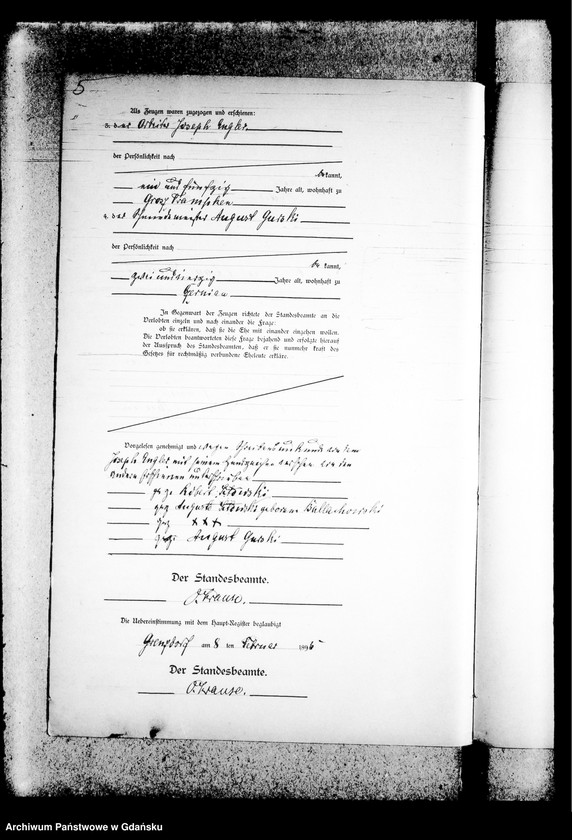 5
Als Zeugen waren zugezogen und erschienen:
3. der Arbeiter Joseph Engler
der Persönlichkeit nach
be kannt,
ein und fünfzig Jahre alt, wohnhaft zu
Gross
4. der August Gurski
der Persönlichkeit nach
be kannt,
zwei und vierzig Jahre alt, wohnhaft zu
In Gegenwart der Zeugen richtete der Standesbeamte an die
Verlobten einzeln und nach einander die Frage:
ob sie erklären, daß sie die Ehe mit einander eingehen wollen.
Die Verlobten beantworteten diese Frage bejahend und erfolgte hierauf
der Ausspruch des Standesbeamten, daß er sie nunmehr kraft des
Gesetzes für rechtmäßig verbundene Eheleute erkläre.
Vorgelesen, genehmigt und wegen Schreibensunkunde von dem
Joseph Engler mit seinem Handzeichen versehen von den
unterschrieben
gez Robert
gez Auguste geborene
gez + + +
gez August Gurski
Der Standesbeamte.
O. Krause.
Die Uebereinstimmung mit dem Haupt-Register beglaubigt
Grenzdorf am 8 ten Februar 189
Der Standesbeamte.
O. Krause.
Archiwum Państwowe w Gdańsku